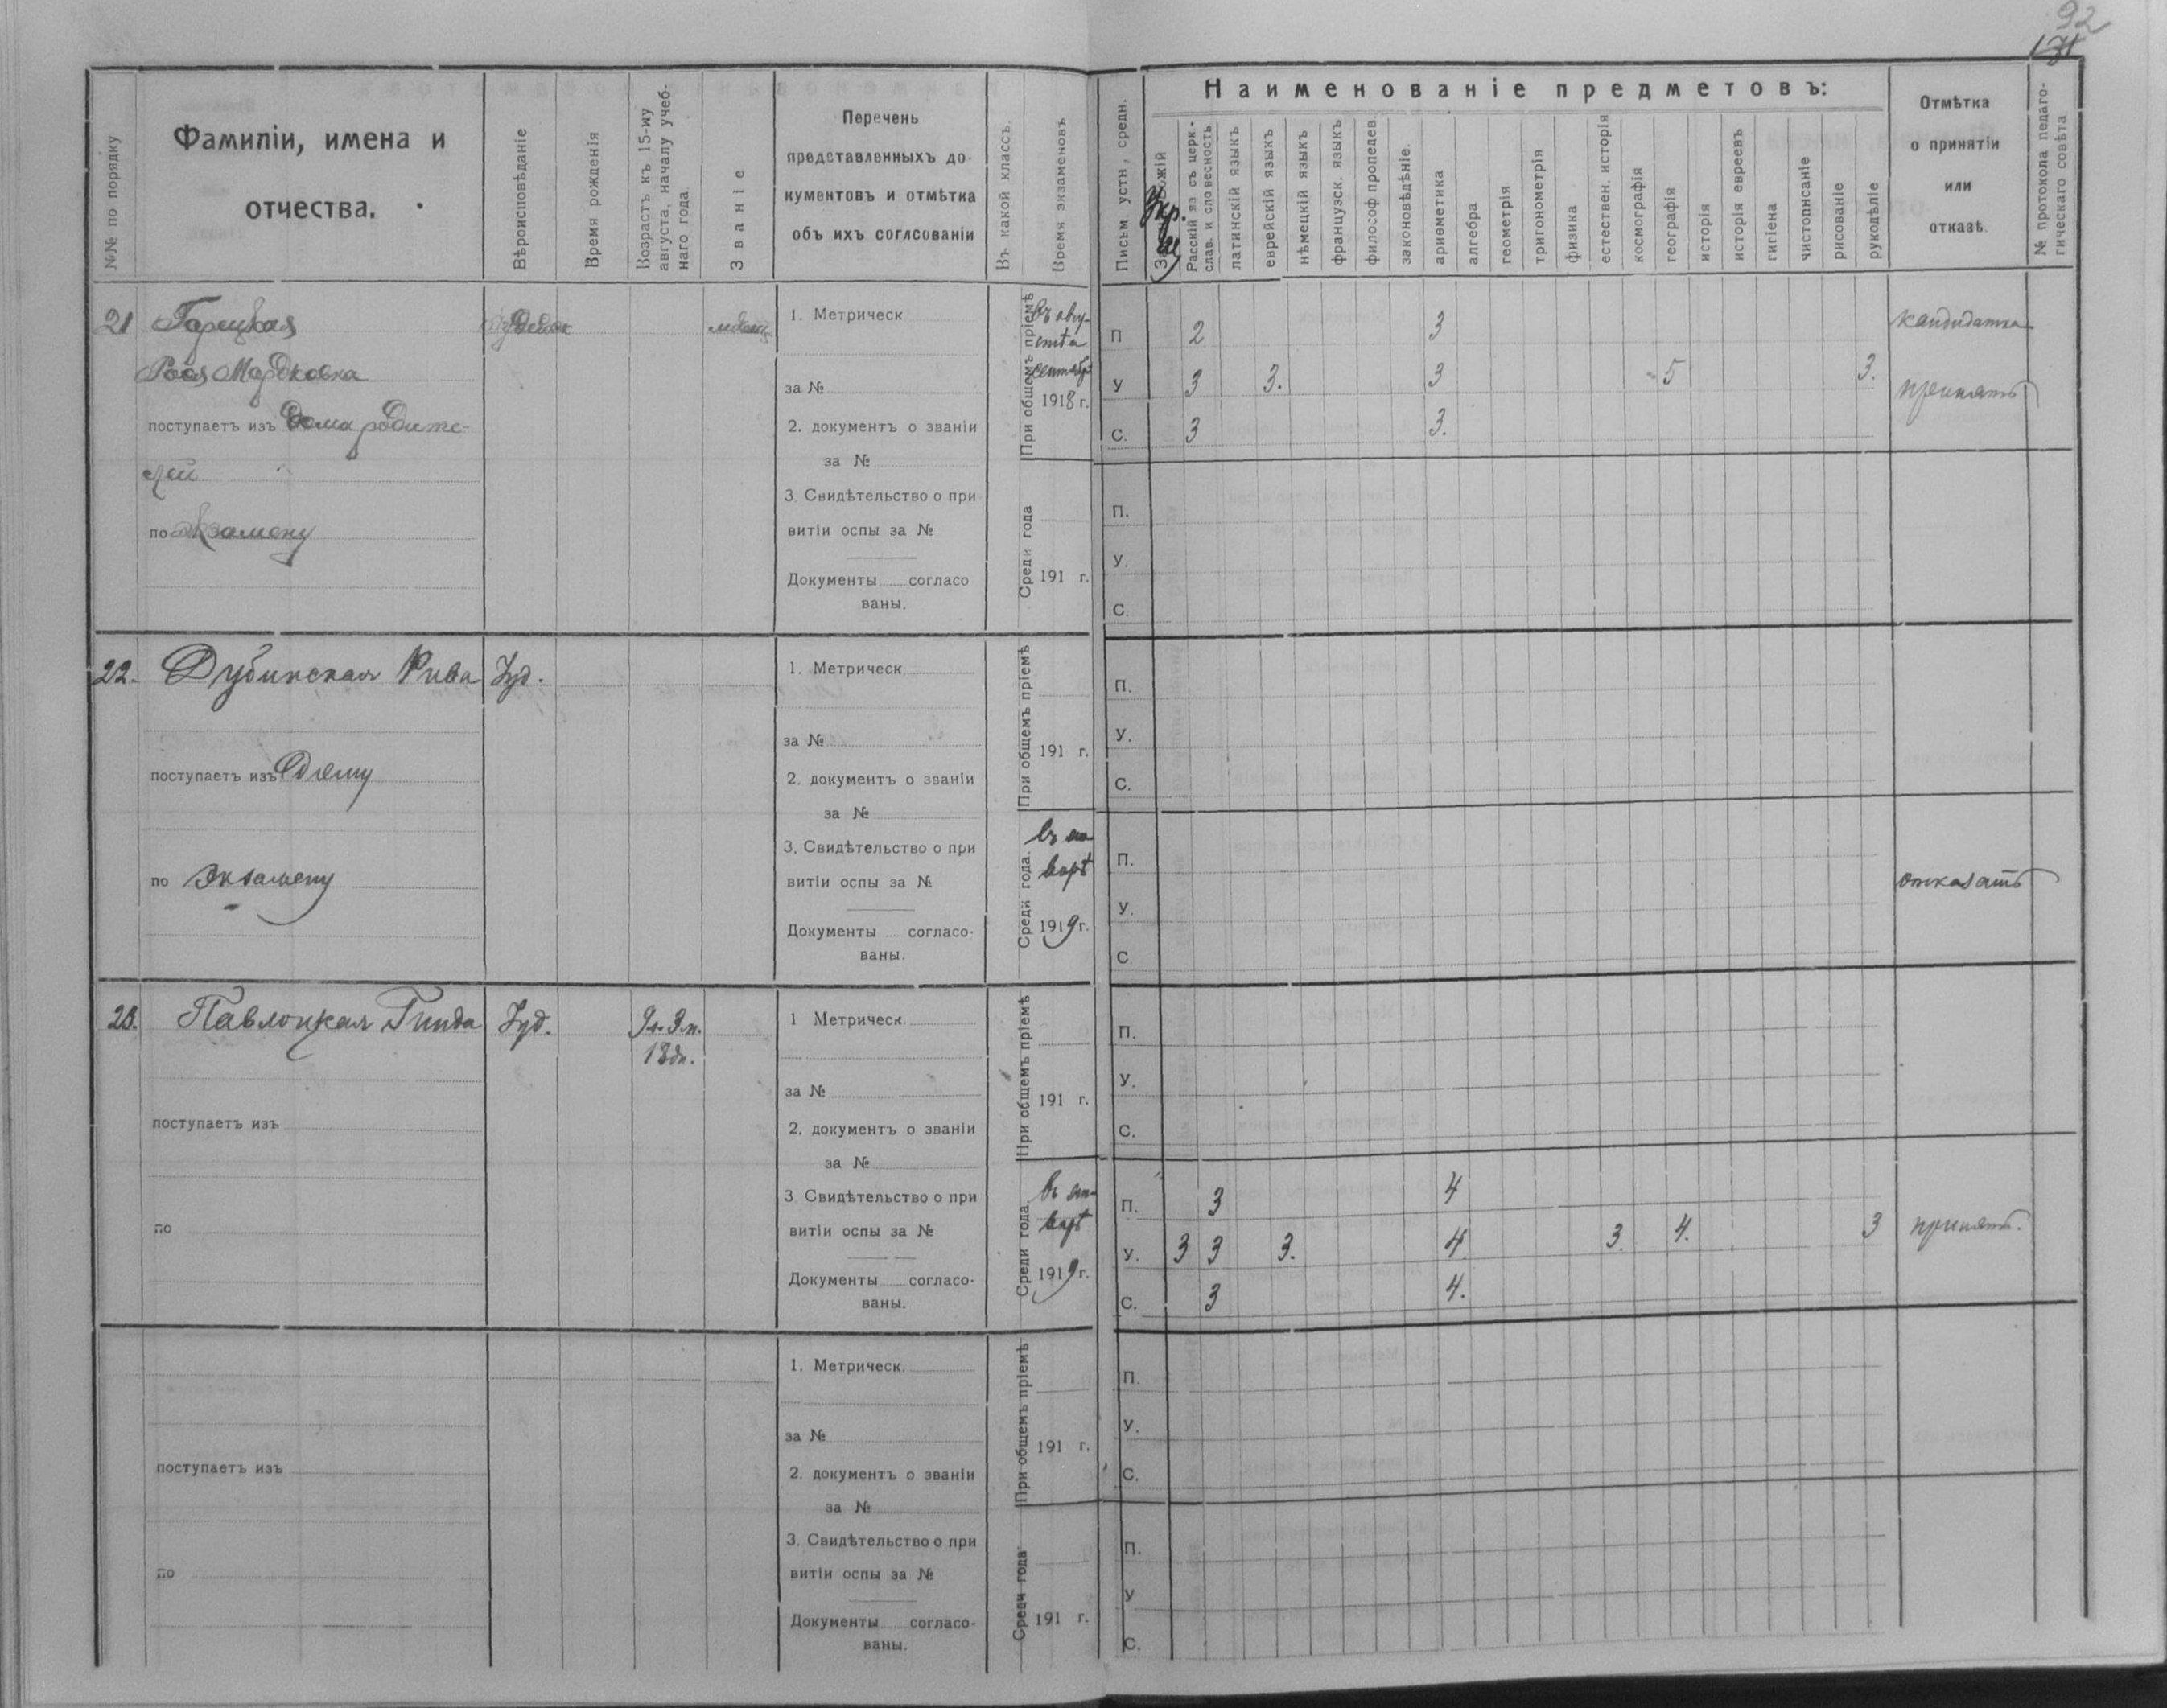 92
131
№№ по порядку
Фамиліи, имена и
отчества.
Вѣроисповѣданіе
Время рожденія
Возрастъ къ 15-му
августа, началу учеб-
наго года.
Званіе
Перечень
представленныхъ до-
кументовъ и отмѣтка
объ ихъ соглсованіи
Въ какой классъ.
Время экзаменовъ
Письм. устн, средн.
Наименованіе предметовъ:
Укр.
Расскій яз съ церк.-
слав. и словесность
латинскій языкъ
еврейскій языкъ
нѣмецкій языкъ
французск. языкъ
философ пропедев.
законовѣдѣніе.
ариѳметика
алгебра
геометрія
тригонометрія
физика
естествен. исторія
космографія
географія
исторія
исторія евреевъ
гигіена
чистописаніе
рисованіе
рукодѣліе
Отмѣтка
о принятіи
или
отказѣ.
№ протокола педаго-
гическаго совѣта
21 Гарецкая
Мордковна
поступаетъ изъ Дома родите-
лей
по экзамену
1. Метрическ
за №
2. документъ о званіи
за №
3. Свидѣтельство о при
витіи оспы за №
Документы согласо
ваны.
При общемъ пріемѣ
въ авгу-
стѣ
сентябр
1918 г.
Среди года
191 г.
П 2 3 кандидатка
У 3 3. 3 5 3. принять
С. 3 3.
П.
У.
С.
22. Дубинская Рива Іуд.
поступаетъ изъ
по экзамену
1. Метрическ
за №
2. документъ о званіи
за №
3. Свидѣтельство о при
витіи оспы за №
Документы согласо-
ваны.
При общемъ пріемѣ
191 г.
Среди года.
въ ян
варѣ
1919 г.
П.
У.
С.
П. отказать
У.
С
23. Павлоцкая Гинда Іуд. 9 л. 3 м.
13 дн.
поступаетъ изъ
по
1 Метрическ.
за №
2. документъ о званіи
за №
3 Свидѣтельство о при
витіи оспы за №
Документы согласо-
ваны.
При общемъ пріемѣ
191 г.
Среди года.
въ ян-
варѣ
1919 г.
П.
У.
С.
П. 3 4
У. 3 3 3. 4 3. 4. 3 принять.
С. 3 4.
поступаетъ изъ
по
1. Метрическ.
за №
2. документъ о званіи
за №
3. Свидѣтельство о при
витіи оспы за №
Документы согласо-
ваны.
При общемъ пріемѣ
191 г.
Среди года
191 г.
П.
У.
С.
П.
У
С.